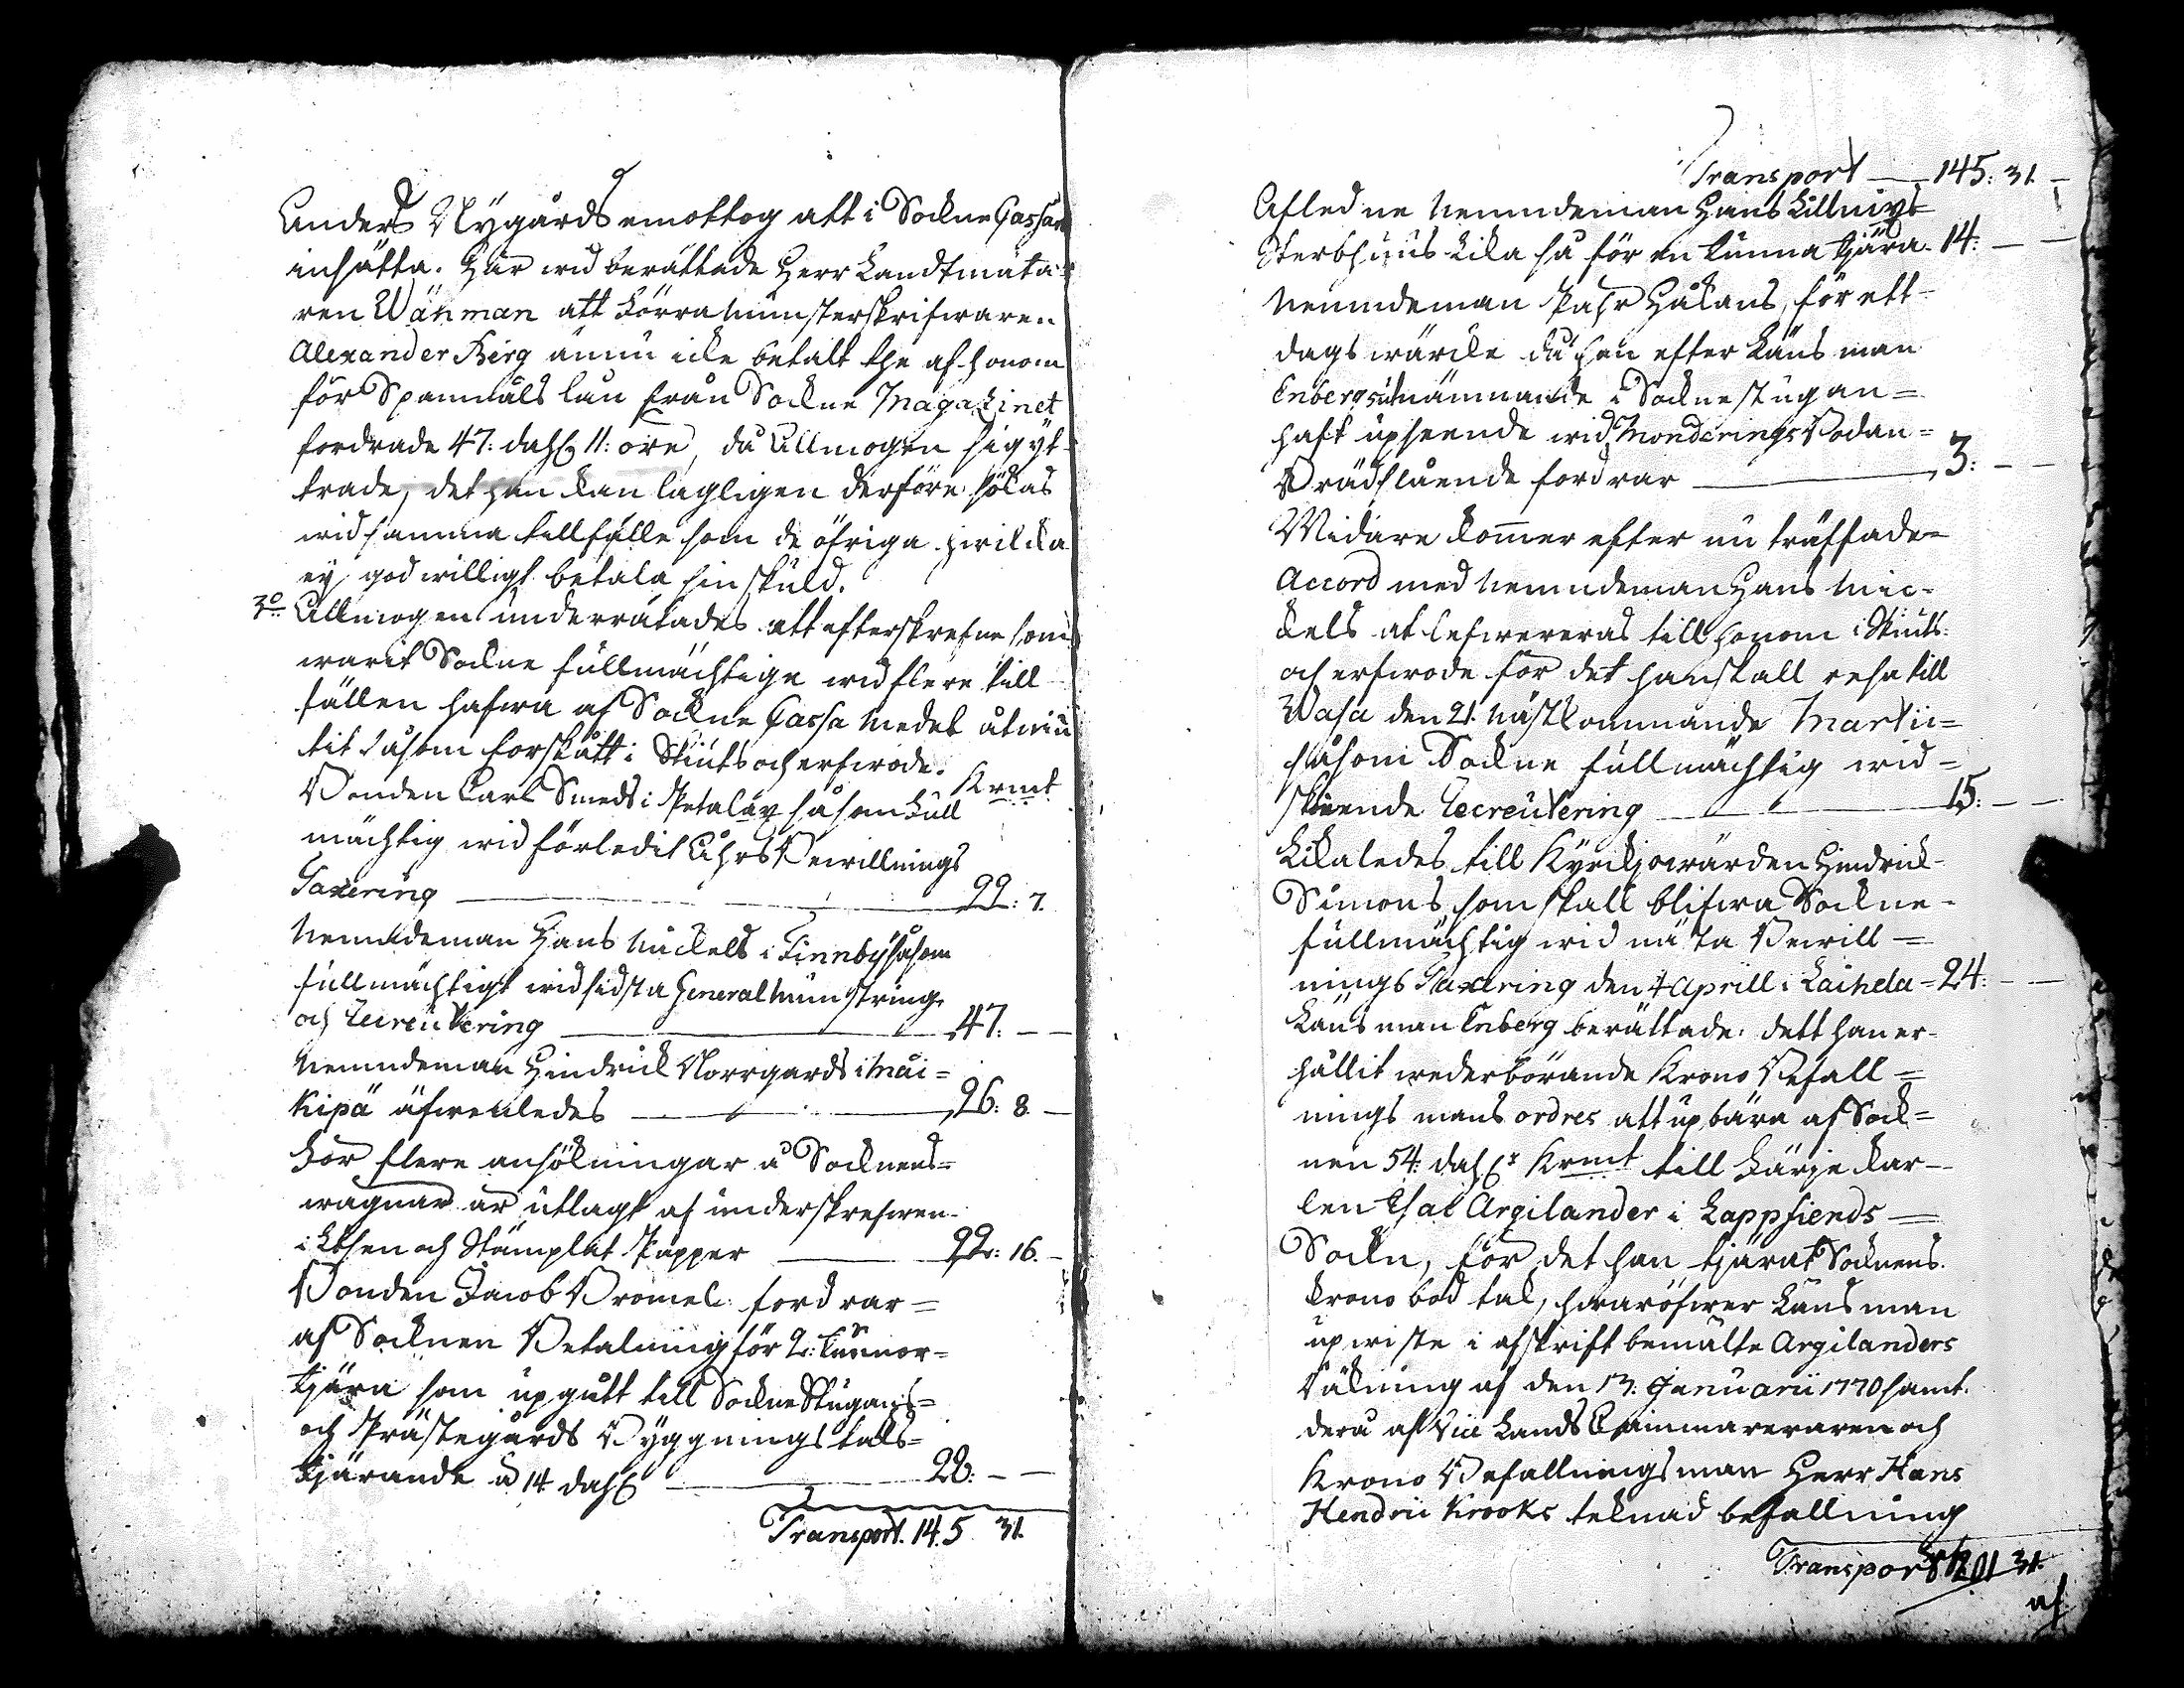 Anders Nygårds emottog att i Sockne Cassan
insätta. Här wid berättade Herr Landtmäta-
ren Wänman att förra Munsterskrifwaren
Alexander Berg ännu icke betalt the af honom
för Spannmåls lån från Sockne Magazinet
fordrade 47: dahl 11: öre, då Allmogen sig yt-
trade, det han kan lagligen derföre sökas
wid samma tillfälle som de öfriga hwilcka
ey godwilligt betala sin skuld.
3o Allmogen underrätades att efterskrefne som
warit Sockne fullmächtige wid flere till
fällen hafwa af Sockne Cassa Medel åtniu
tit såsom forskått i Skiuts och arfwode.
Kmt
Bonden Carl Smeds i Petalax såsom full
mächtig wid förledit Åhrs Bewillnings
Taxering 22: 7.
Nemndeman Hans Mickels i Finnby såsom
fullmächtigt wid sidsta General Munstring
och Recreutering 47: - -
Nemndeman Hindrick Norrgards i Mai=
kipä äfwenledes 26: 8. -
För flere ansökningar å Socknens=
wagnar är utlagt af underskrefwen
i Lösen och Stämplat Papper 22: 16. -
Bonden Jacob Bromels fordrar=
af Socknen Betalning för 2: tunnor=
tjära som upgått till Sockne Stugans=
och Prästegårds Byggnings taks=
tjärande a 14 dahl 28: - -
Transport. 145 31.
Transport 145: 31. -
Afledne Nemndeman Hans Lillnivs
Sterbhus Lika så för en tunna tjära 14: - -
Nemndeman Pähr Håkans, för ett=
dagswärcke då han efter Länsman
Enbergs utnämnande i Sockne stugan=
haft upseende wid Monderings Bodan=
Brädslående fordrar 3: - -
Widare kommer efter nu träffade=
Accord med Nemndeman Hans Mic-
kels at lefwereras till honom i Skiuts
och arfwode för det han skall resa till
Wasa den 21. Nästkommande Martii=
såsom Sockne fullmächtig wid=
skeende Recreutering 15: - -
Likaledes till Kyrckjowärden Hindrick
Simons som skall blifwa Sockne=
fullmächtig wid nästa Bewill=
nings Taxering den 4 Aprill i Laihela= 24: - -
Länsman Enberg berättade: dett han er-
hållit wederbörande Krono Befall=
nings mans ordres att upbära af Sock=
nen 54: dahlr Kmt till Färje kar-
len Esai Argilander i Lappfierds=
Sockn, för det han tjärat Socknens
Krono bod tak, hwaröfwer Länsman
upwiste i afskrift bemälte Argilanders
Räkning af den 13: Januarii 1770 samt
dera af Vice Lands Cammareraren och
Krono Befallningsman Herr Hans
Hendric Krooks teknad befallning
Transport 201 31.
af